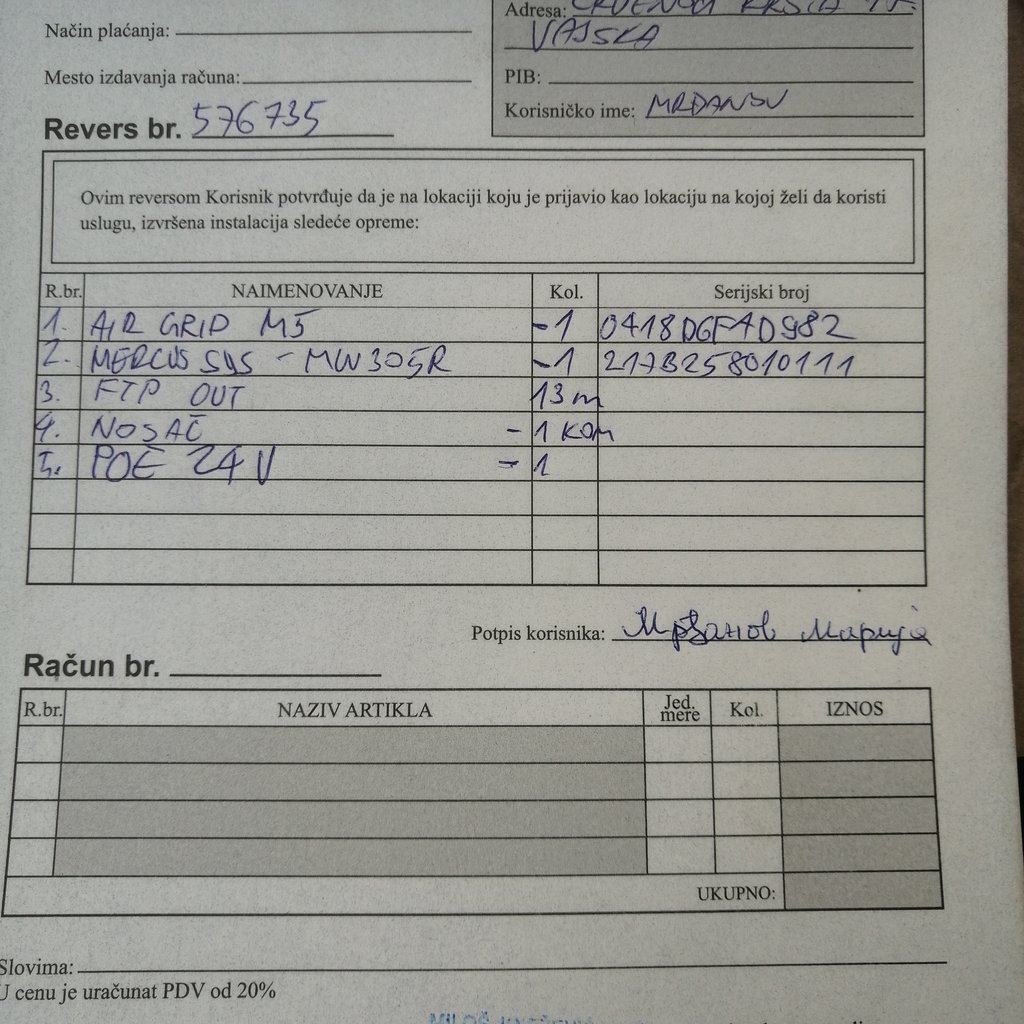 Adresa: CRVENOG KRSTA
Način plaćanja:
VAJSKA
Mesto izdavanja računa:
PIB:
Korisničko ime: MRDANOV
Revers br. 576735
Ovim reversom Korisnik potvrđuje da je na lokaciji koju je prijavio kao lokaciju na kojoj želi da koristi
uslugu, izvršena instalacija sledeće opreme:
R.br. NAIMENOVANJE Kol. Serijski broj
1. AIR GRID M5 -1 0418DGF4D982
2. MERCUSSYS - MW305R -1 217B258010111
3. FTP OUT 13 m
4. NOSAČ - 1 KOM
5. POE 24 V - 1
Potpis korisnika: Мрђанов Марија
Račun br.
R.br. NAZIV ARTIKLA Jed. mere Kol. IZNOS
UKUPNO:
Slovima:
U cenu je uračunat PDV od 20%